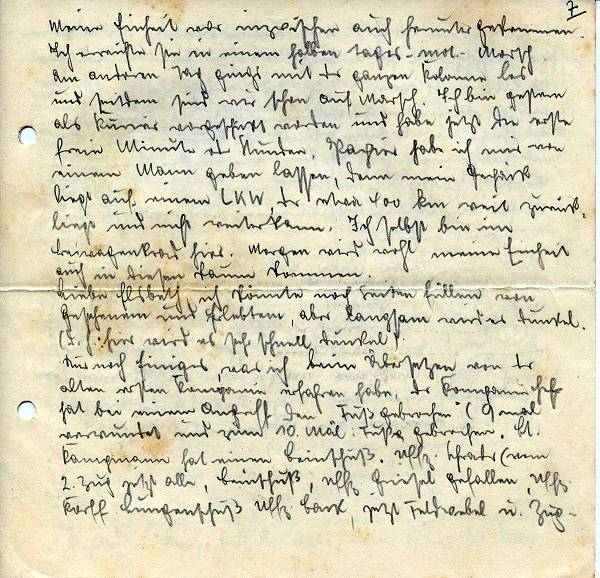 7
Meine Einheit war inzwischen auch herunter gekommen.
Ich erreichte sie in einem halben Tages-mot.-Marsch.
Am anderen Tag ging's mit der ganzen Kolonne los
und seitdem sind wir schon auf Marsch. Ich bin gestern
als Kurier vorgeschickt worden und habe jetzt die erste
freie Minute der Stunden. Papier habe ich mir von
einem Mann geben lassen, denn mein Gepäck
liegt auf einem LKW, der etwa 400 km weit zurück-
liegt und nicht weiterkann. Ich selbst bin im
Beiwagenkrad hier. Morgen wird wohl meine Einheit
auch in diesen Raum kommen.
Liebe Elsbeth, ich könnte noch Seiten füllen von
Gesehenem und Erlebtem, aber langsam wird es dunkel.
(d. h. hier wird es sehr schnell dunkel).
Nur noch Einiges, was ich beim Übersetzen von der
alten ersten Kompanie erfahren habe, der Kompaniechef
hat bei einem Angriff den Fuß gebrochen (9 mal
verwundet und zum 10. Mal: Fuß gebrochen. Lt.
Kampmann hat einen Beinschuß. Uffz. Schrader (vom
2. Zug jetzt alle, Beinschuß, Uffz. gefallen, Uffz.
Korff Lungenschuß Uffz. Back, jetzt Feldwebel u. Zug-